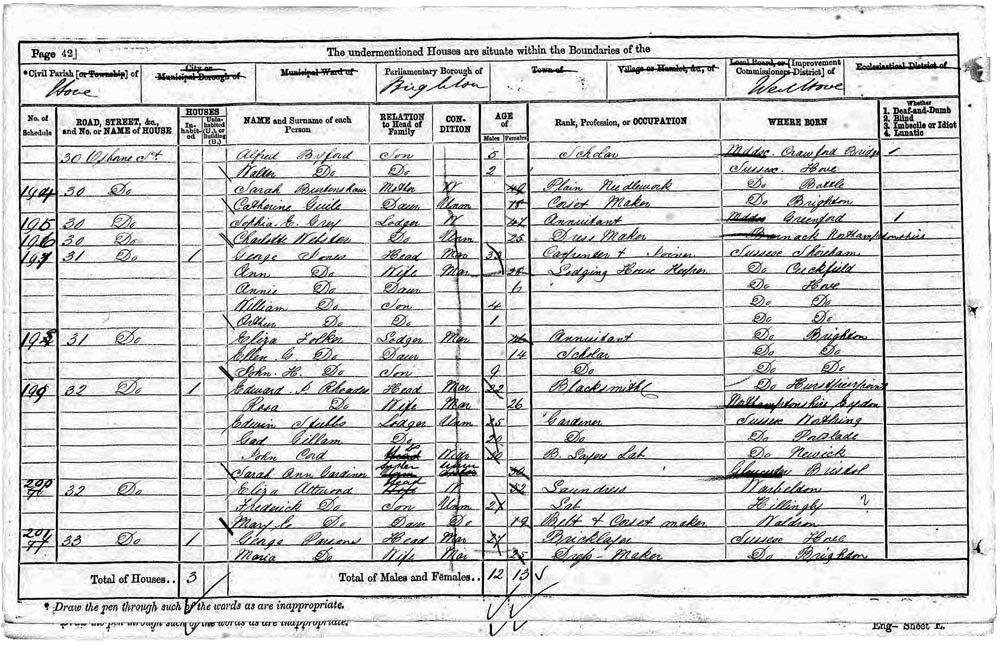 Page 42]
The undermentioned Houses are situate within the Boundaries of the
*Civil Parish [or Township] of
City or Municipal Borough of
Municipal Ward of
Parliamentary Borough of
Town of
Village or Hamlet, &c., of
Local Board, or [Improvement Commissioners District] of
Ecclesiastical District of
Hove
Brighton
West Hove
No. of Schedule
ROAD, STREET, &c., and No. or NAME of HOUSE
HOUSES
Inhabited
Uninhabited (U.), or Building (B.)
NAME and Surname of each Person
RELATION to Head of Family
CONDITION
AGE of
Males
Females
Rank, Profession, or OCCUPATION
WHERE BORN
Whether
1. Deaf-and-Dumb
2. Blind
3. Imbecile or Idiot
4. Lunatic
30 Osborne St. Alfred Byford Son 5 Scholar Middx. Crawford Bridge 1
Walter Do Do 2 Sussex Hove
194 30 Do Sarah Mother W 49 Plain Needlework Do Battle
Catherine Daur Unm 18 Corset Maker Do Brighton
195 30 Do Sophia E. Grey Lodger W 47 Annuitant Middx Greenford 1
196 30 Do Charlotte Webster Do Unm 25 Dress Maker Barnack Northamptonshire
197 31 Do 1 George Jones Head Mar 33 Carpenter & Joiner Sussex Shoreham
Ann Do Wife Mar 28 Lodging House Keeper Do Cuckfield
Annie Do Daur 6 Do Hove
William Do Son 4 Do Do
Arthur Do Do 1 Do Do
198 31 Do Eliza Folker Lodger Mar 46 Annuitant Do Brighton
Ellen C. Do Daur 14 Scholar Do Do
John H. Do Son 9 Do Do Do
199 32 Do 1 Edward Rhoades Head Mar 22 Blacksmith Do Hurstpierpoint
Rosa Do Wife Mar 26 Northamptonshire Eydon
Edwin Stubbs Lodger Unm 25 Gardener Sussex Worthing
Gad Gillam Do 20 Do Do Portslade
John Cord Do Widr 30 B. Layers Lab Do Newick
Sarah Ann Gardiner 30 Gloucester Bristol
200 32 Do Eliza Attwood Head W 52 Laundress Warbeldon
Frederick Do Son Unm 21 Lab Hillingly
Mary E. Do Daur Do 19 Belt & Corset maker Waldron
201 33 Do 1 George Parsons Head Mar 27 Bricklayer Sussex Hove
Maria Do Wife Mar 25 Dress Maker Do Brighton
Total of Houses.. 3
Total of Males and Females.. 12 13
* Draw the pen through such of the words as are inappropriate.
Draw the pen through such of the words as are inappropriate.
Eng— Sheet E.